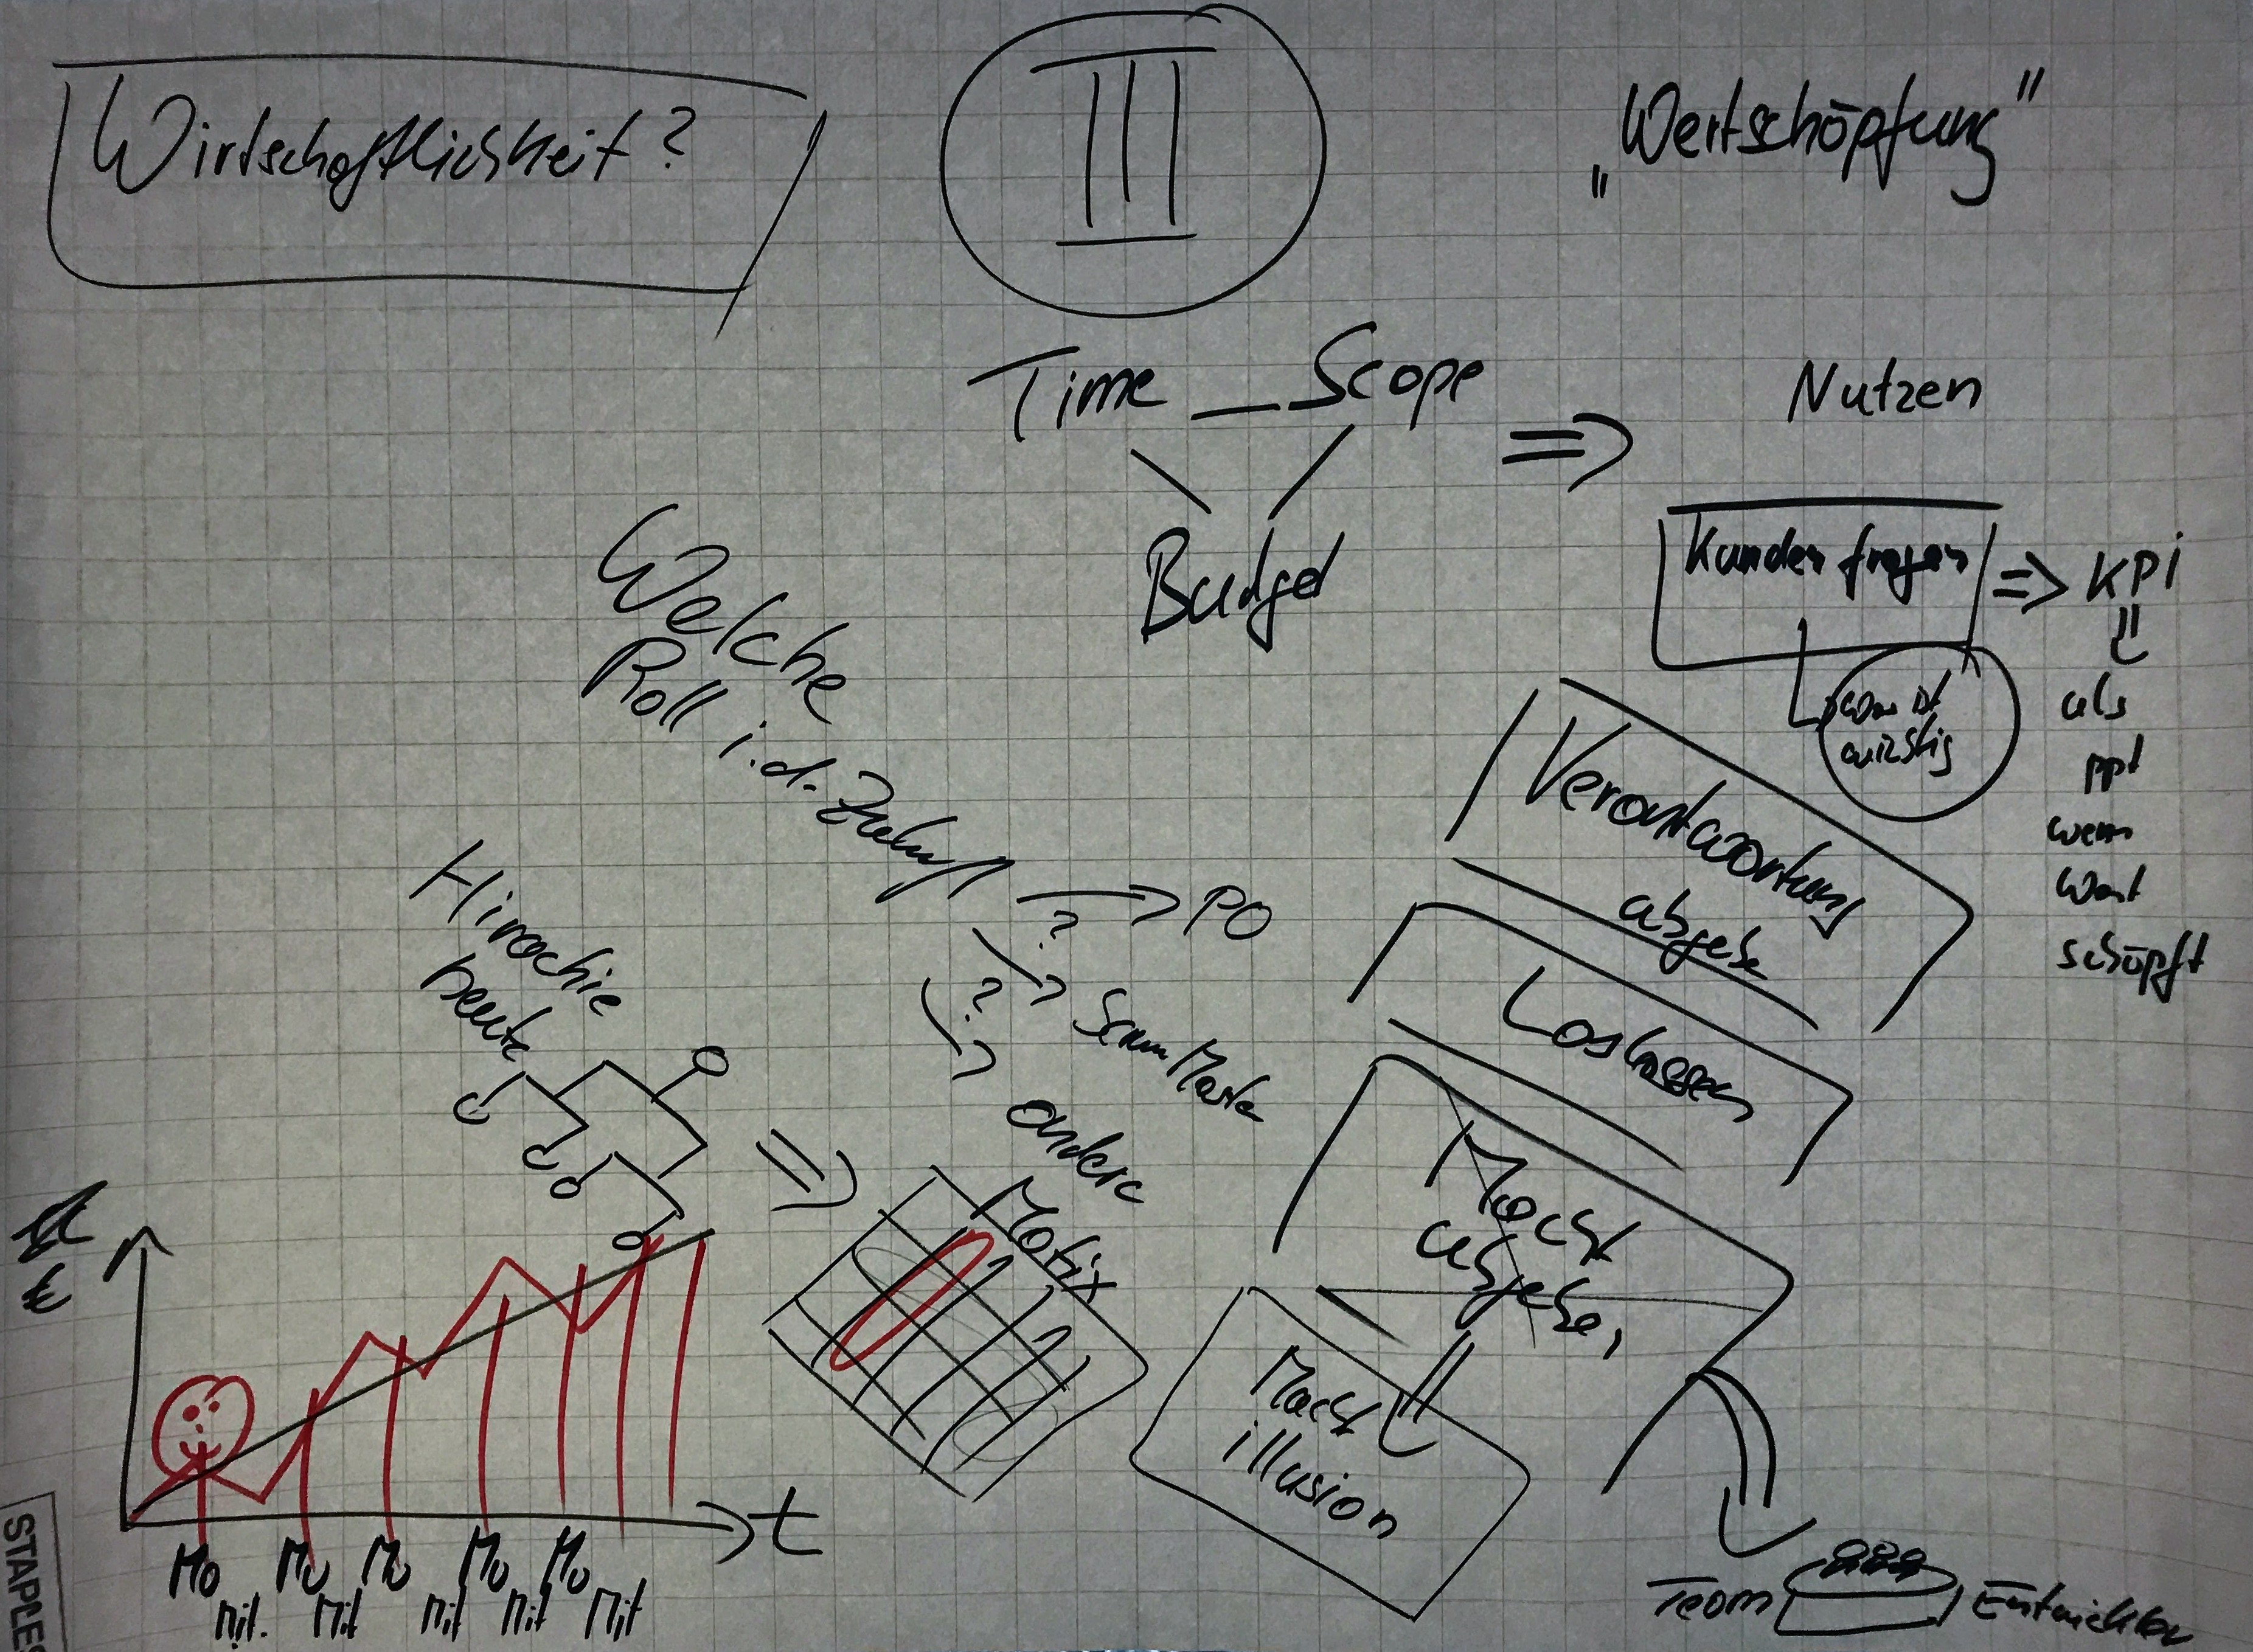 Wirtschaftlichkeit?
III
„Wertschöpfung"
Time — Scope
Budget
=> Nutzen
Kunden fragen => KPI
was ist
wichtig
als
ppt
wenn
Wert
schöpft
Welche
Roll i.d. Zukunft
? PO
? Scrum Master
andere
Hirachie
heute
=> Matrix
Verantwortung
abgebe
Loslassen
Macht
abgeben
Macht
illusion
Team
Entwickler
€
t
Mo Mo Mo Mo Mo
Mit. Mit Mit Mit Mit
STAPLES